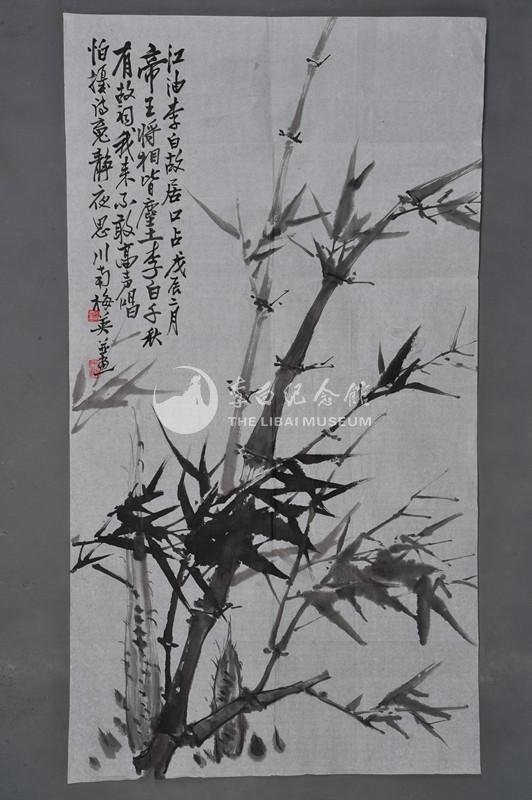 江油李白故居口占戊辰二月
帝王将相皆尘土李白千秋
有故祠我来不敢高声唱
怕扰诗竟静夜思川南梅英并画
李白纪念馆
THE LIBAI MUSEUM